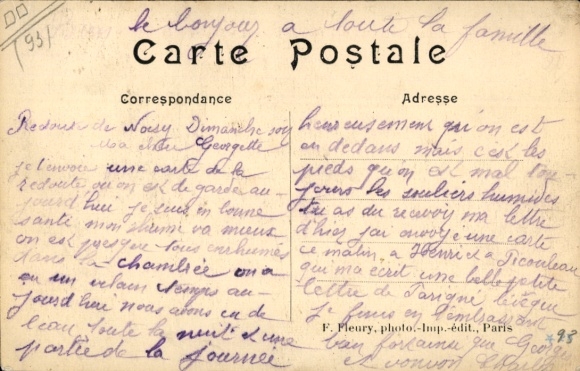 le bonjour a toute la famille
(93)
Carte Postale
Correspondance
Adresse
Redoute de Noisy Dimanche soir
Ma Georgette
je t'envoie une carte de la
redoute ou on est de garde au-
jourd'hui je suis en bonne
santé mon rhume va mieux
on est presque tous enrhumés
dans la chambrée on a
eu un vilain temps au-
jourd'hui nous avons eu de
l'eau toute la nuit et une
partie de la journée
heureusement qu'on est
en dedans mais c'est les
pieds qu'on est mal tou-
jours les souliers humides
tu as du recevoir ma lettre
d'hier j'ai envoyé une carte
ce matin a Henri
qui m'a ecrit une belle petite
lettre de
je finis en t'embrassant
bien
et
F. Fleury, photo.-Imp.-édit., Paris
93